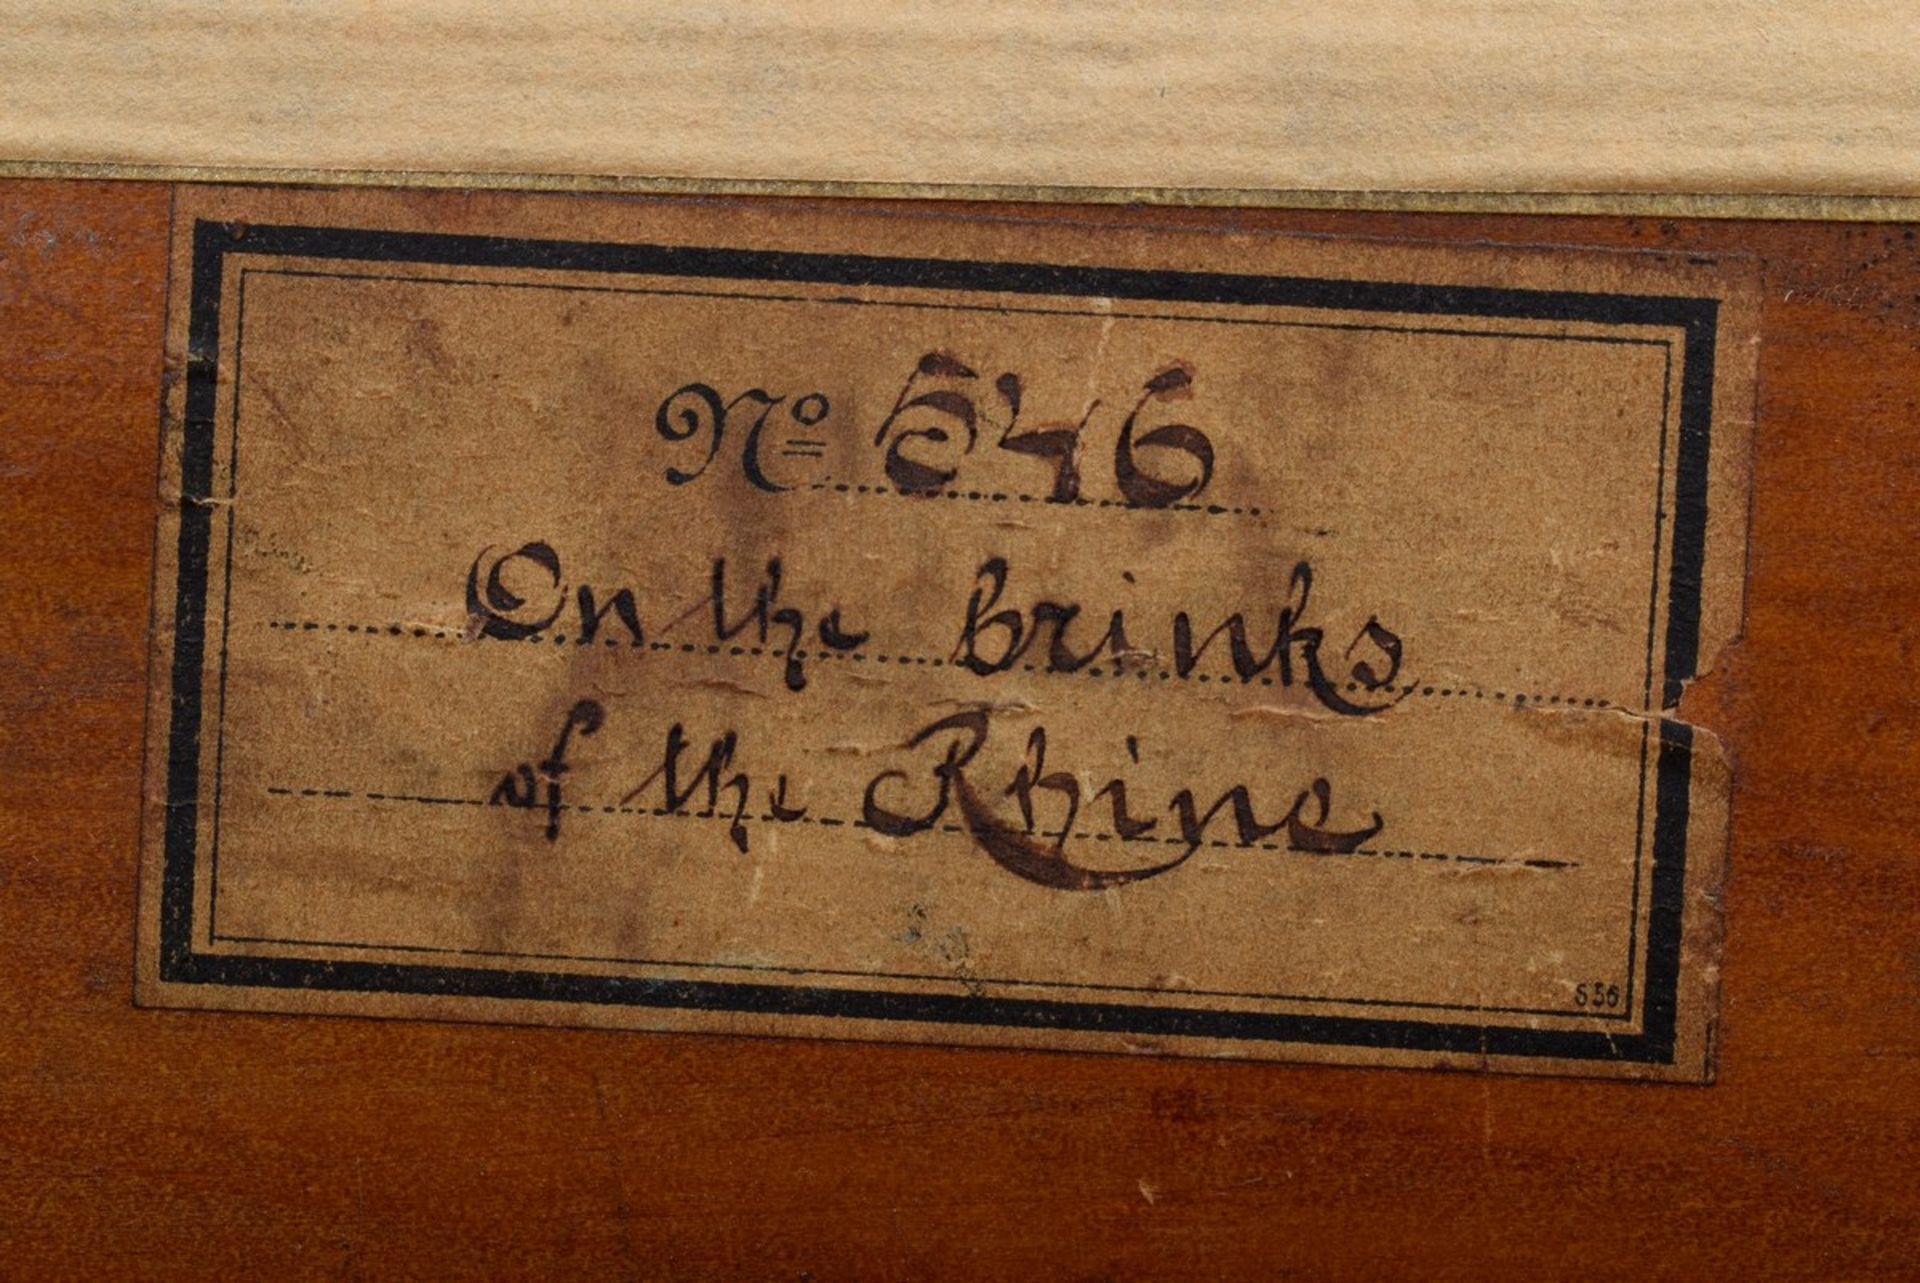 Nº 546
On the brinks
of the Rhine
S 56